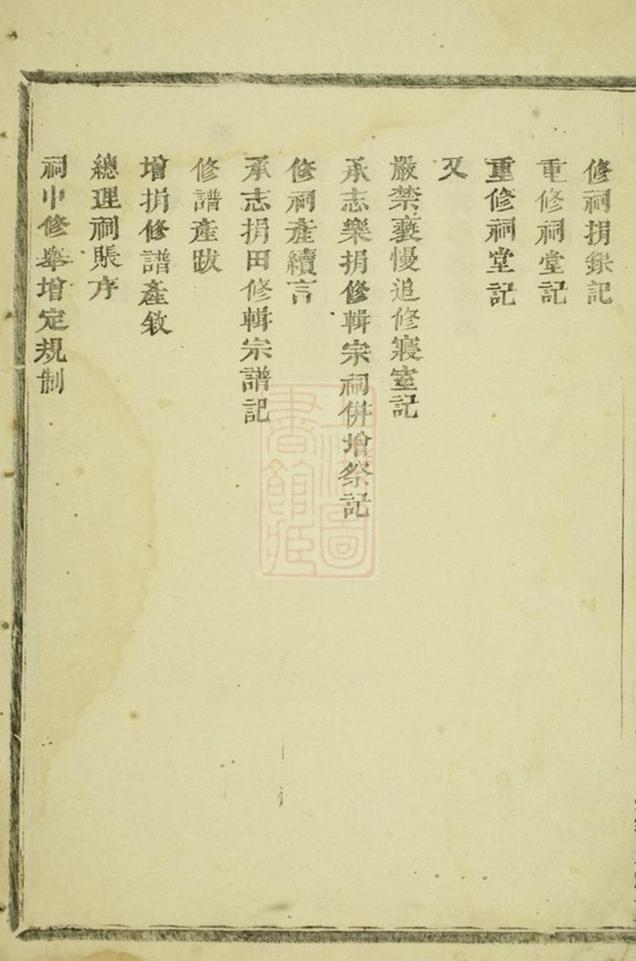 修祠捐錄記
重修祠堂記
重修祠堂記
又
嚴禁褻慢追修寢室記
承志樂捐修輯宗祠併增祭記
修祠產續言
承志捐田修輯宗譜記
修譜產跋
增捐修譜產敘
總理祠賬序
祠中修舉增定規制